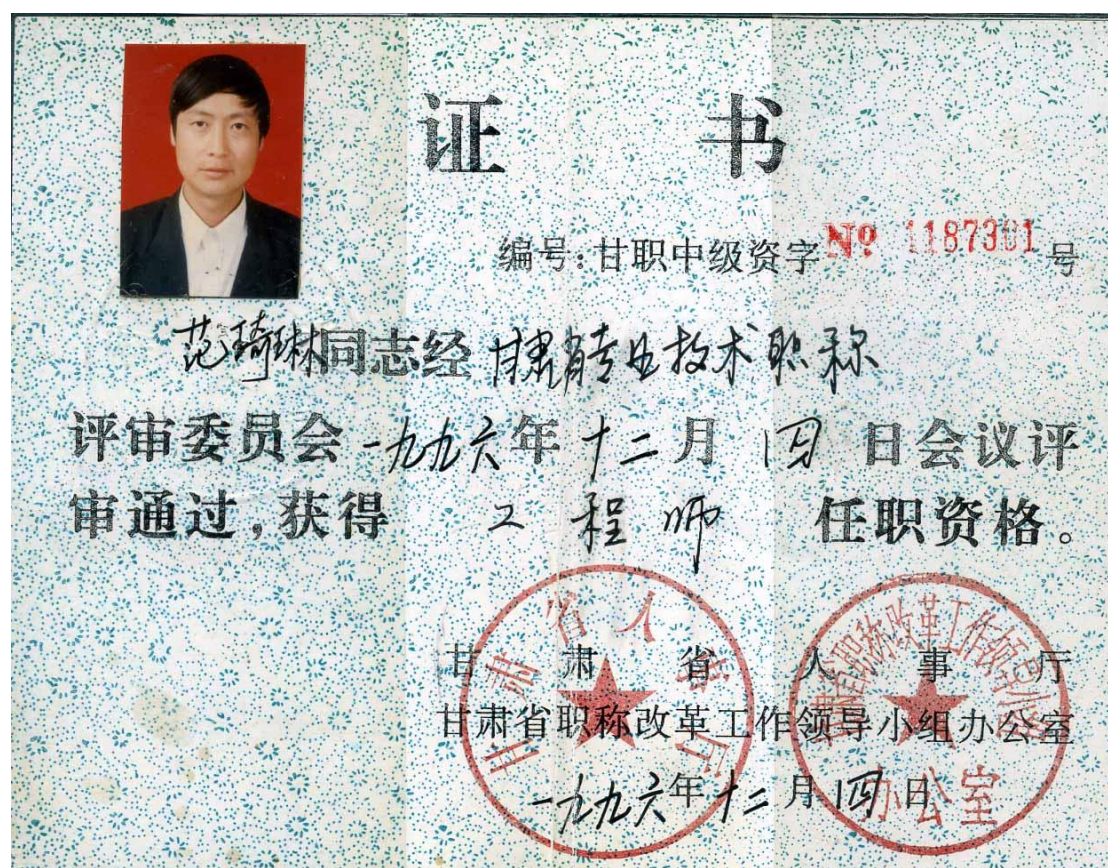 证 书
编号:甘职中级资字 № 1187301 号
范琦琳同志经 甘肃省专业技术职称
评审委员会 一九九六年 十二月 四 日会议评
审通过,获得 工程师 任职资格。
甘肃省人事厅
甘肃省职称改革工作领导小组办公室
一九九六年十二月四日
甘肃省人事厅
甘肃省职称改革工作领导小组
办公室